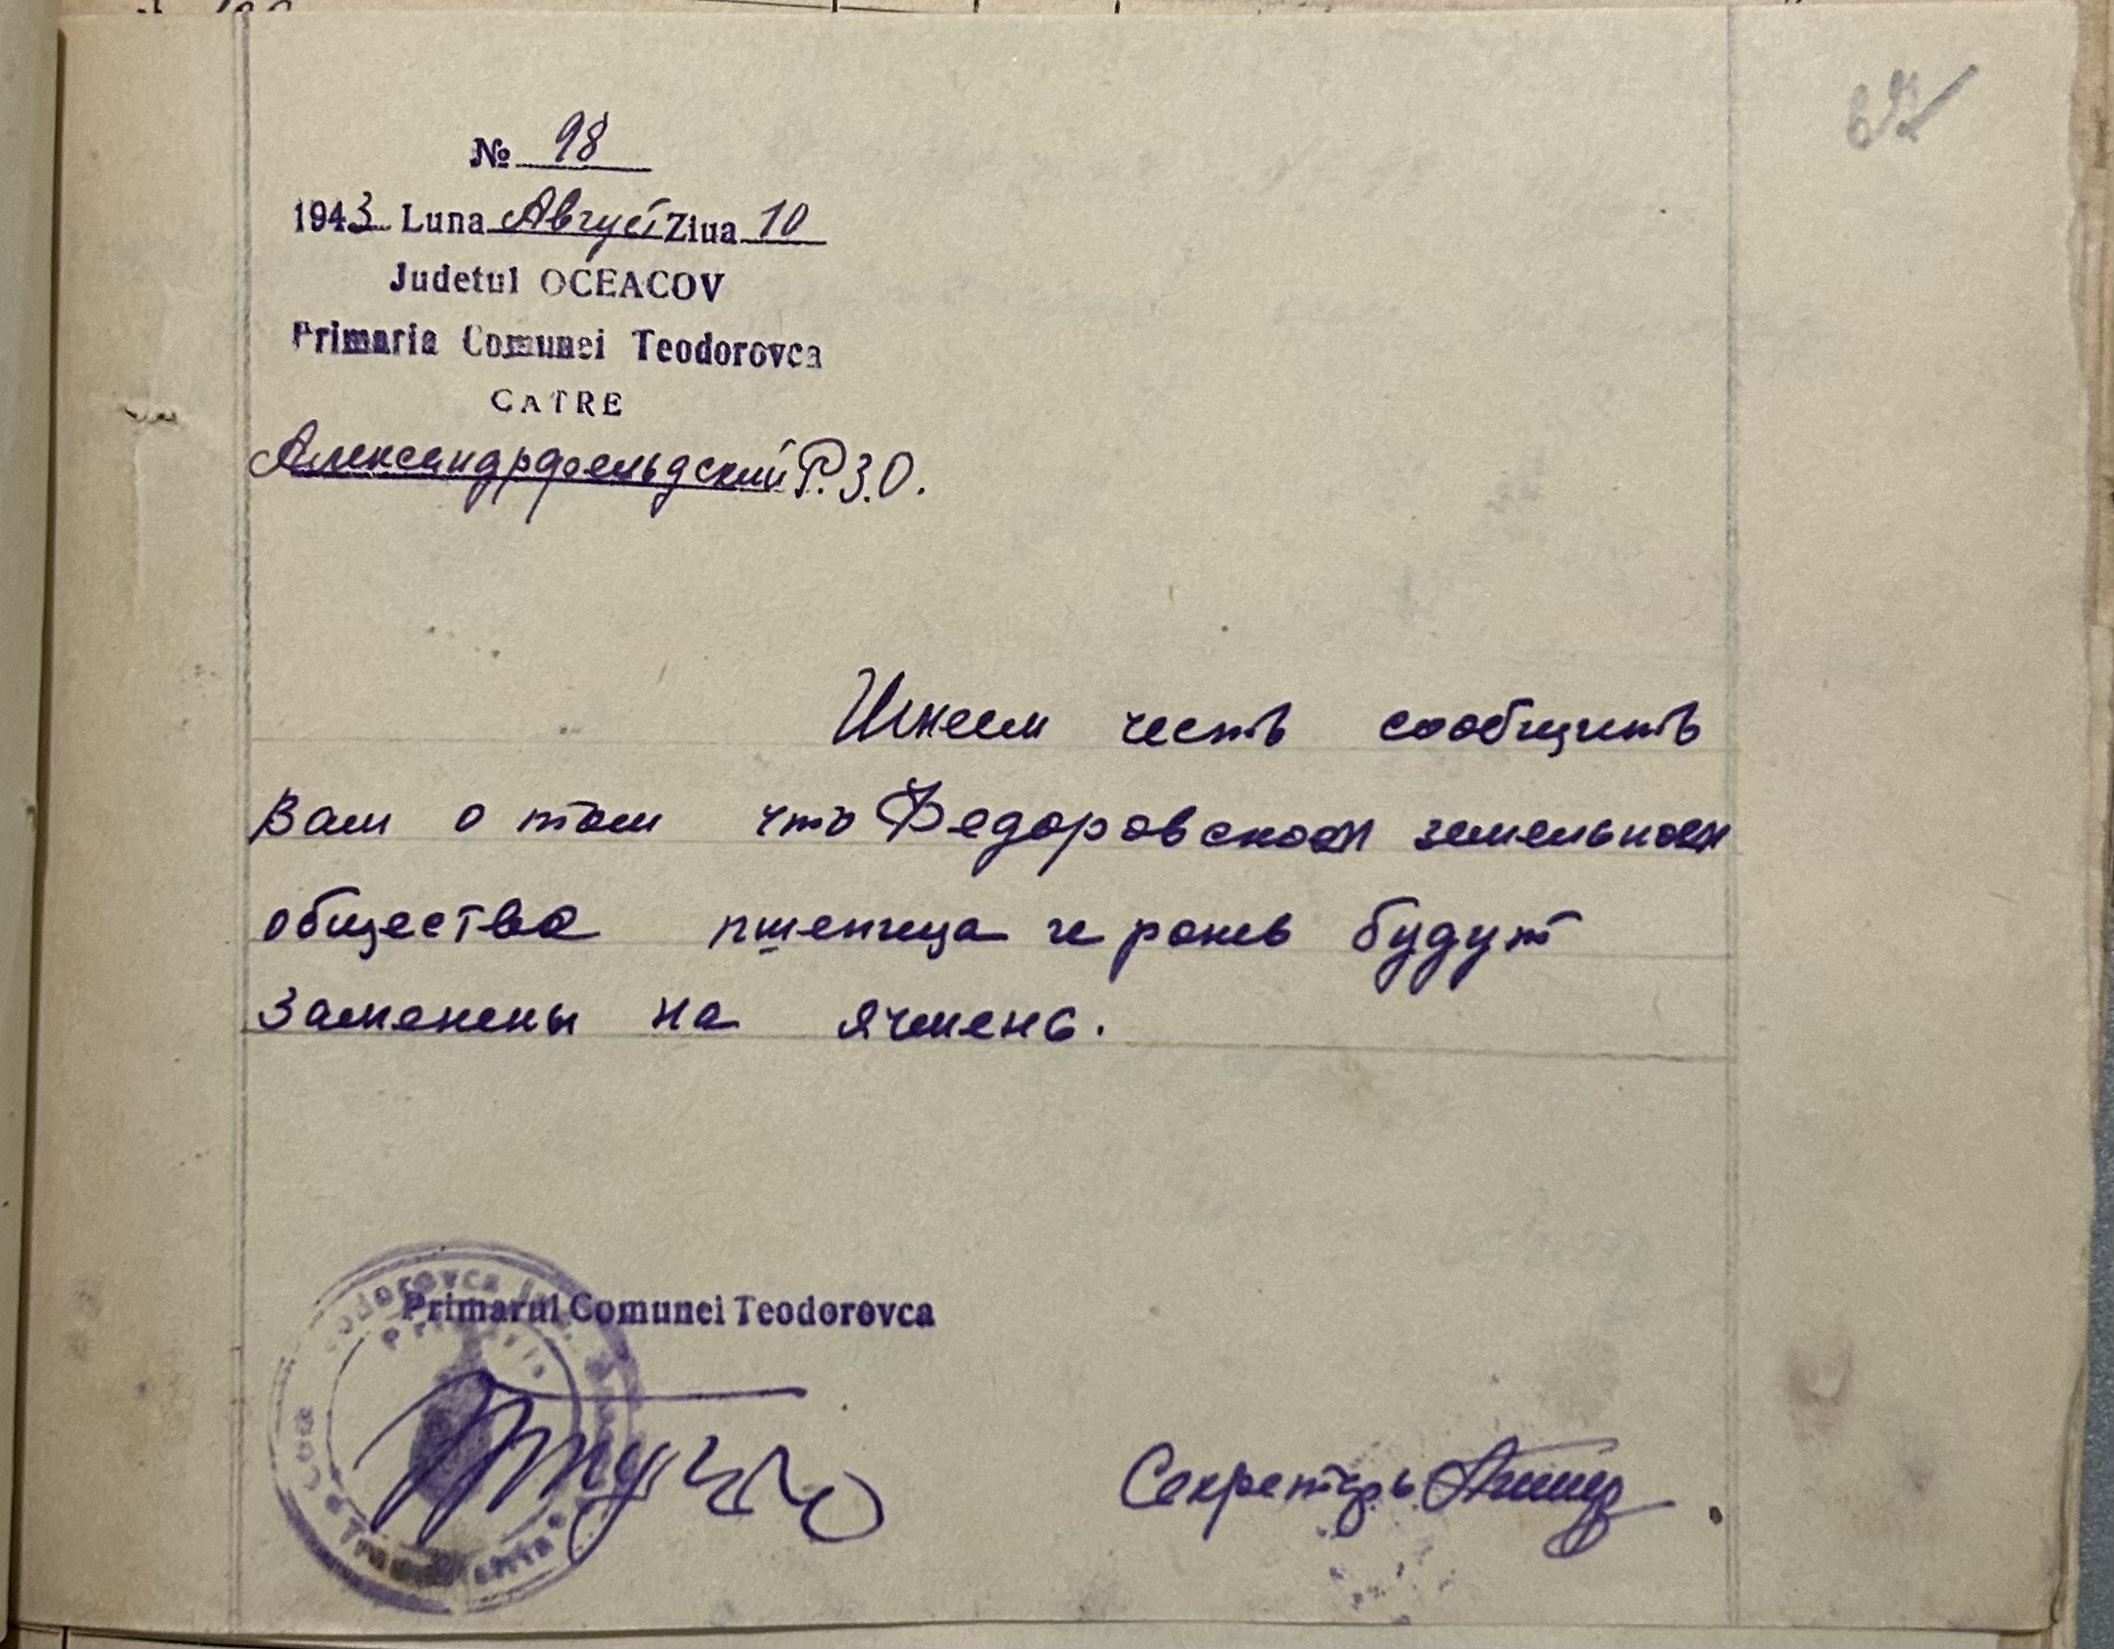 № 98
1943 Luna Август Ziua 10
Judetul OCEACOV
Primaria Comunei Teodorovca
CATRE
Александрфельдский Р.З.О.
Имеем честь сообщить
Вам о том что Федоровском земельном
общества пшеница и рожь будут
заменены на ячмень.
Primarul Comunei Teodorovca
Секретарь